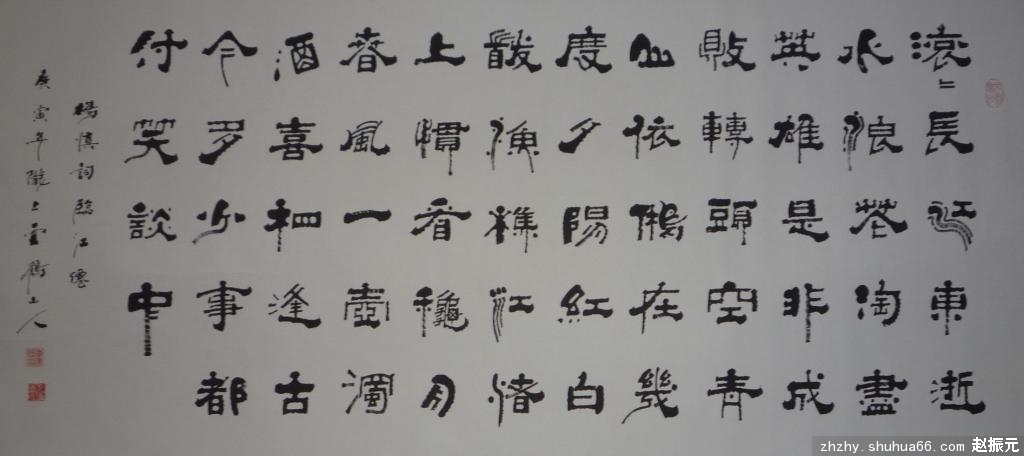 滚〻長江東逝
水浪花淘盡
英雄是非成
敗轉頭空青
山依舊在幾
度夕陽紅白
髮漁樵江渚
上慣看龝月
春風一壺濁
酒喜相逢古
今多少事都
付笑談中
楊慎詞臨江僊
庚寅年隴上雲鶴山人
zhzhy.shuhua66.com 赵振元